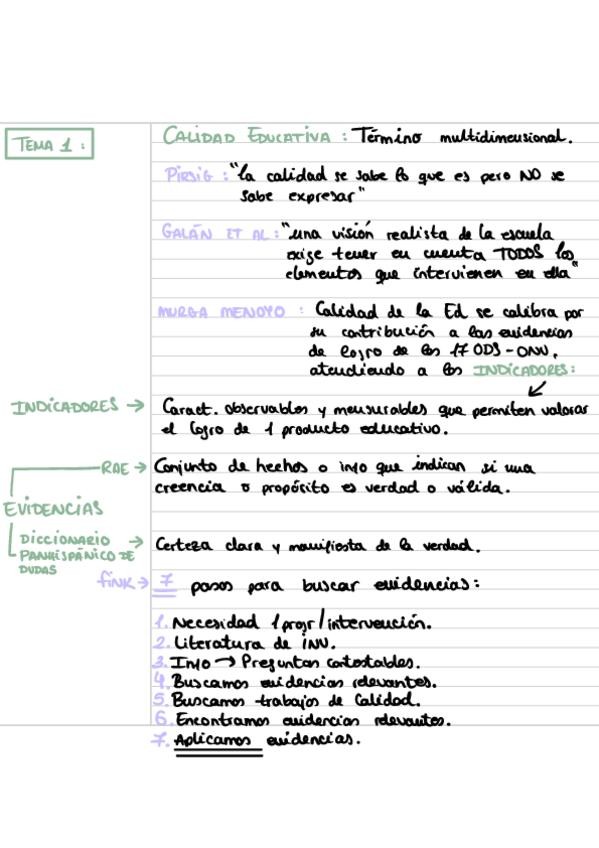 TEMA 1 :
CALIDAD EDUCATIVA : Término multidimensional.
PIRSIG : "la calidad se sabe lo que es pero NO se
sabe expresar"
GALÁN ET AL : "una visión realista de la escuela
exige tener en cuenta TODOS los
elementos que intervienen en ella"
MURGA MENOYO : Calidad de la Ed se calibra por
su contribución a las evidencias
de logro de los 17 ODS-ONU,
atendiendo a los INDICADORES:
INDICADORES → Caract. observables y mensurables que permiten valorar
el logro de 1 producto educativo.
EVIDENCIAS
RAE → Conjunto de hechos o info que indican si una
creencia o propósito es verdad o válida.
DICCIONARIO → Certeza clara y manifiesta de la verdad.
PANHISPÁNICO DE
DUDAS
FINK → 7 pasos para buscar evidencias:
1. Necesidad 1 progr/intervención.
2. Literatura de INV.
3. Info → Preguntas contestables.
4. Buscamos evidencias relevantes.
5. Buscamos trabajos de Calidad.
6. Encontramos evidencias relevantes.
7. Aplicamos evidencias.